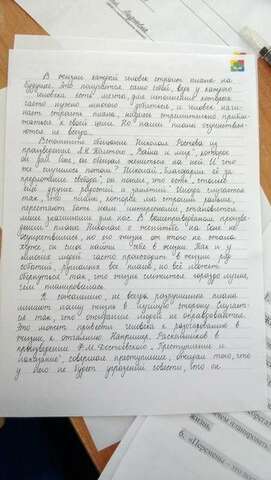 В жизни каждый человек строит планы на
будущее. Это получается само собой, ведь у каждого
человека есть мечта, для исполнения которой
часто нужно многого добиться, и человек начи-
нает строить планы, надеясь стремительно прибли-
зиться к своей цели. Но наши планы осуществля-
ются не всегда.
Вспомните обещание Николая Ростова из
произведения Л.Н. Толстого „Война и мир", которое
он дал Соне, он обещал жениться на ней. И что
же случилось потом? Николай благодарил её за
прекрасные он понял, что есть, столько
ещё других радостей и занятий. Иногда случается
так, что планы, которые мы строили раньше,
перестают быть нам интересными, становятся
менее важными для нас. В вышеприведённом произве-
дении планы Николая о женитьбе на Соне не
осуществились, но его жизнь от этого не стала
хуже, он смог найти себя в жизни. Как и у
многих людей часто происходит в жизни ряд
событий, рушащих все планы, но всё может
обернуться так, что жизнь сложится гораздо лучше,
чем планировалось.
К сожалению, не всегда разрушенные планы
меняют нашу жизнь в лучшую сторону. Случает-
ся так, что ожидания людей не оправдываются.
Это может привести человека к разочарованию в
жизни, к отчаянию. Например, Раскольников в
произведении Ф.М. Достоевского „Преступление и
наказание", совершая преступление, ожидал того, что
у него не будет угрызений совести, что он
6. «Перемены – это